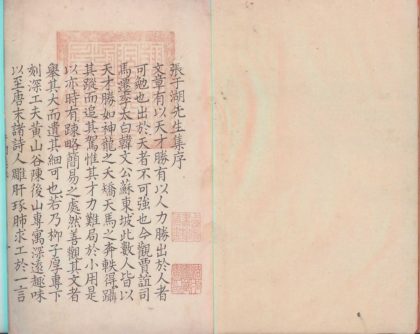 張于湖先生集序
文章有以天才勝有以人力勝出於人者
可勉也出於天者不可強也今觀賈誼司
馬遷李太白韓文公蘇東坡此數人皆以
天才勝如神龍之夭矯天馬之奔軼得躡
其蹤而追其駕惟其才力難局於小用是
以亦時有疎略簡易之處然善觀其文者
舉其大而遺其細可也若乃柳子厚專下
刻深工夫黃山谷陳後山專寓深遠趣味
以至唐末諸詩人雕肝琢肺求工於一言